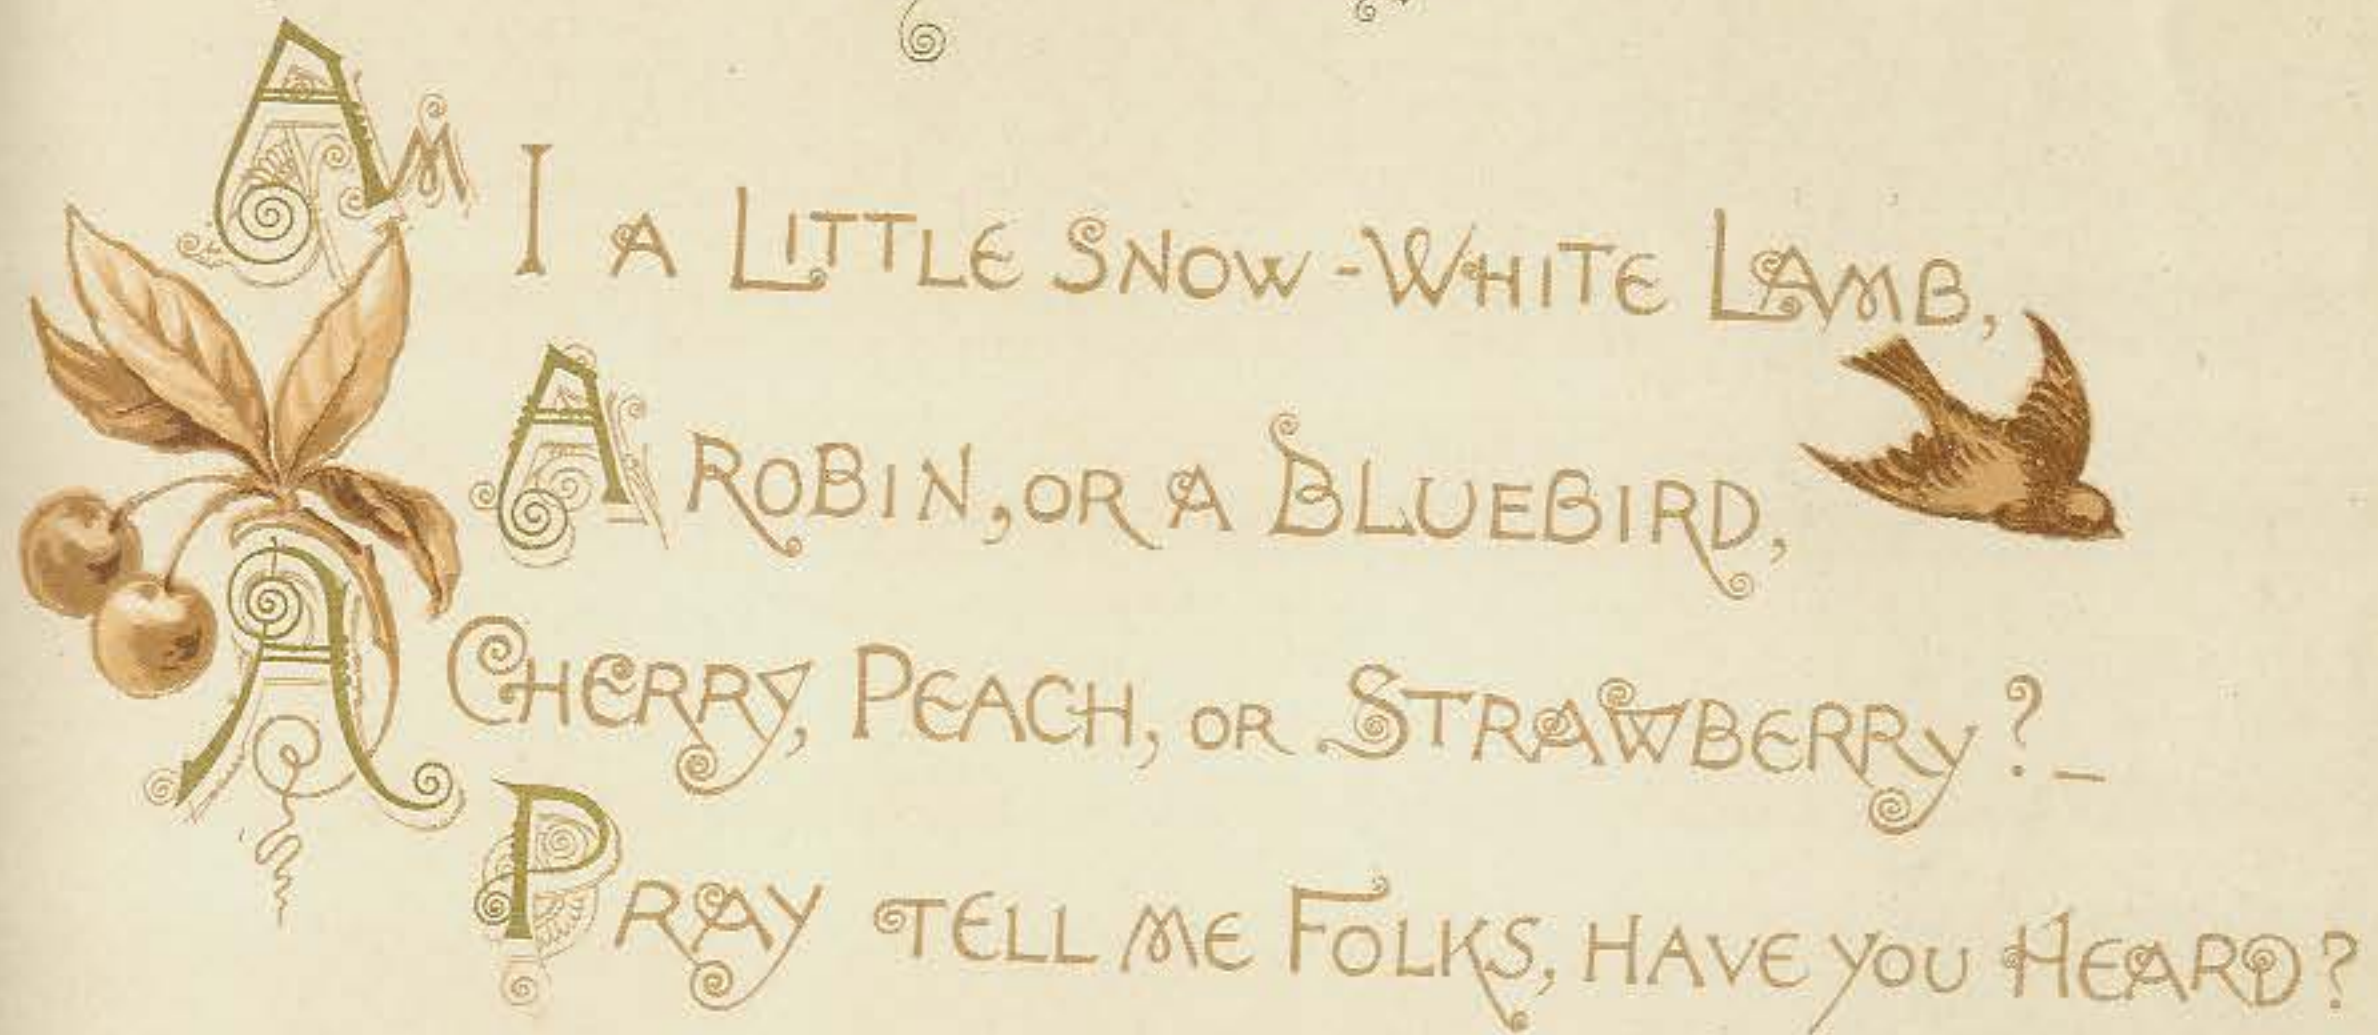 Am I a Little Snow-White Lamb,
A Robin, or a Bluebird,
A Cherry, Peach, or Strawberry?_
Pray tell me Folks, have you Heard?